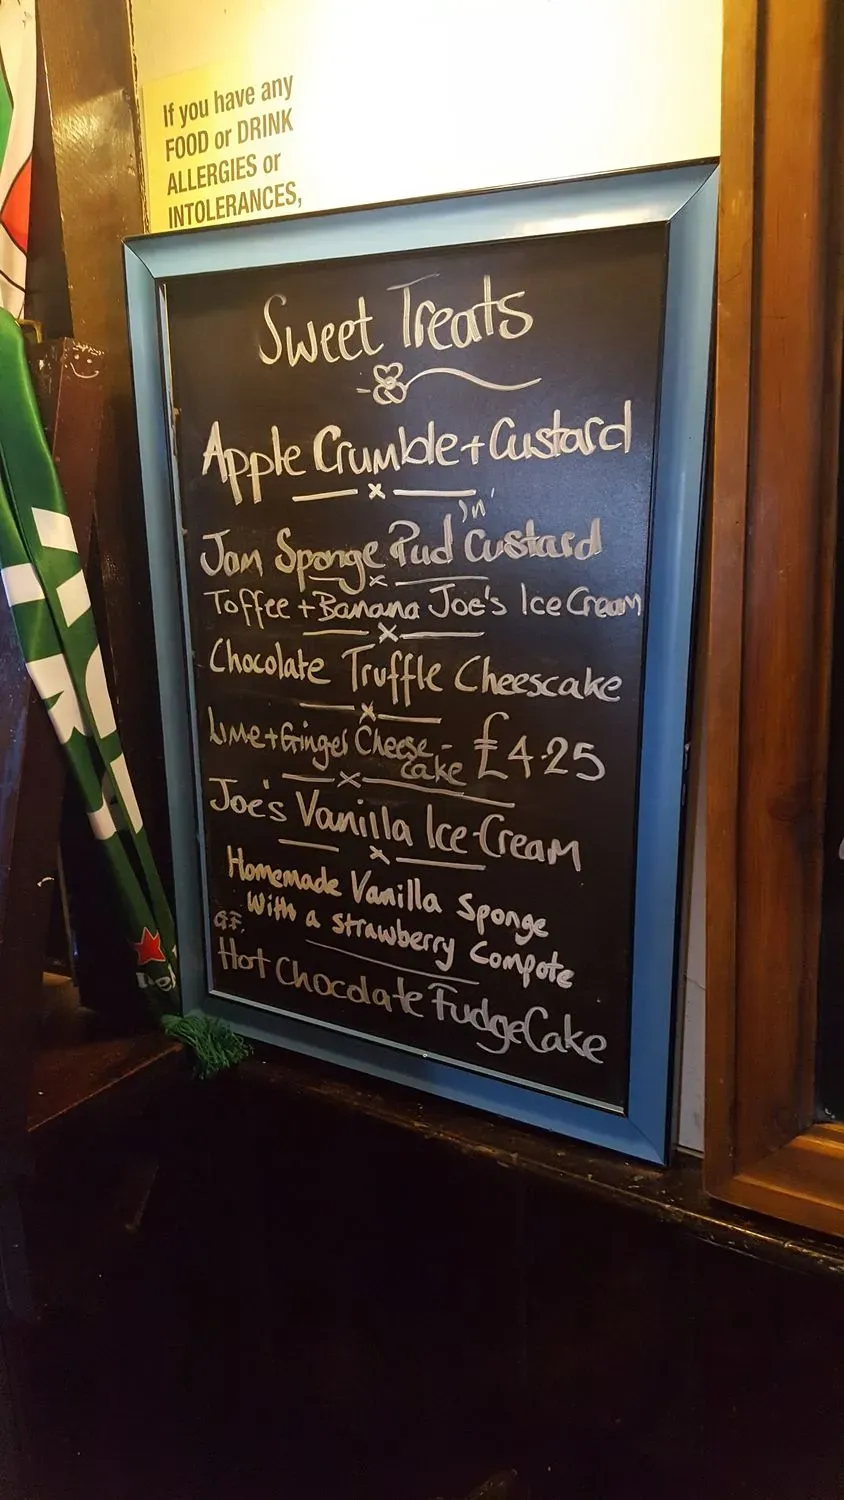 If you have any
FOOD or DRINK
ALLERGIES or
INTOLERANCES,
Sweet Treats
Apple Crumble + Custard
Jam Sponge Pud 'n' Custard
Toffee + Banana Joe's Ice Cream
Chocolate Truffle Cheesecake
Lime + Ginger Cheese-
cake £4.25
Joe's Vanilla Ice-Cream
Homemade Vanilla Sponge
With a strawberry Compote
G.F.
Hot Chocolate Fudge Cake